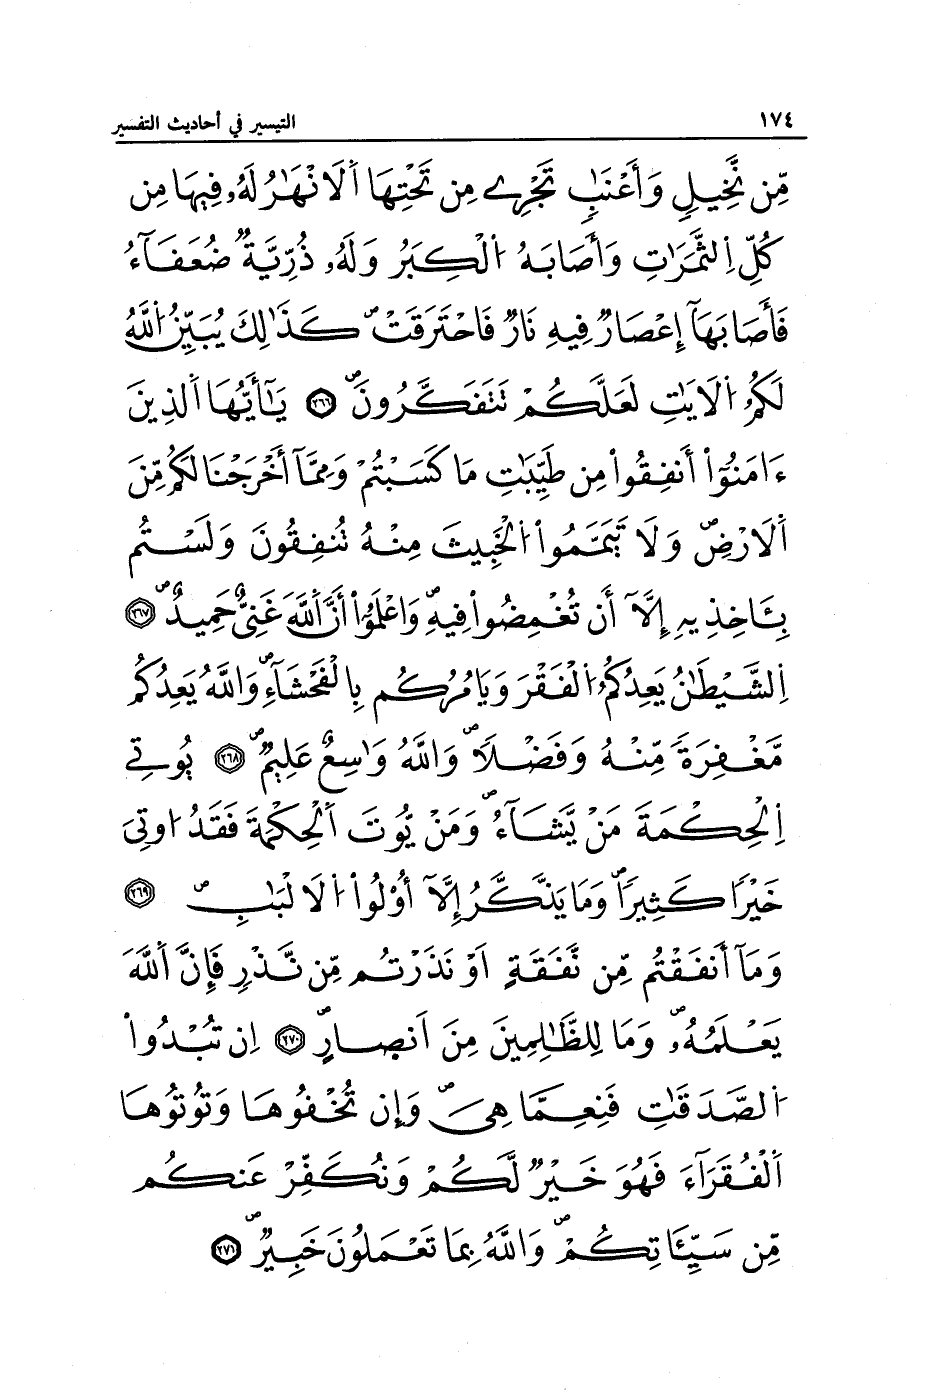 ١٧٤ التيسير في أحاديث التفسير
مِّن نَّخِيلٖ وَأَعْنَٰبٖ تَجْرِے مِن تَحْتِهَا اَ۬لَانْهَٰرُ لَهُۥ فِيهَا مِن
كُلِّ اِ۬لثَّمَرَٰتِ وَأَصَابَهُ اُ۬لْكِبَرُ وَلَهُۥ ذُرِّيَّةٞ ضُعَفَآءُ
فَأَصَابَهَآ إِعْصَارٞ فِيهِ نَارٞ فَاحْتَرَقَتْۖ كَذَٰلِكَ يُبَيِّنُ اُ۬للَّهُ
لَكُمُ اُ۬لَايَٰتِ لَعَلَّكُمْ تَتَفَكَّرُونَۖ ٢٦٦ يَٰٓأَيُّهَا اَ۬لذِينَ
ءَامَنُوٓاْ أَنفِقُواْ مِن طَيِّبَٰتِ مَا كَسَبْتُمْ وَمِمَّآ أَخْرَجْنَا لَكُم مِّنَ
اَ۬لَارْضِۖ وَلَا تَيَمَّمُواْ اُ۬لْخَبِيثَ مِنْهُ تُنفِقُونَ وَلَسْتُم
بِـَٔاخِذِيهِ إِلَّآ أَن تُغْمِضُواْ فِيهِۖ وَاعْلَمُوٓاْ أَنَّ اَ۬للَّهَ غَنِيٌّ حَمِيدٌۖ ٢٦٧
اِ۬لشَّيْطَٰنُ يَعِدُكُمُ اُ۬لْفَقْرَ وَيَامُرُكُم بِالْفَحْشَآءِۖ وَاللَّهُ يَعِدُكُم
مَّغْفِرَةٗ مِّنْهُ وَفَضْلاٗۖ وَاللَّهُ وَٰسِعٌ عَلِيمٞۖ ٢٦٨ يُوتِے
اِ۬لْحِكْمَةَ مَنْ يَّشَآءُۖ وَمَنْ يُّوتَ اَ۬لْحِكْمَةَ فَقَدُ ا۟وتِيَ
خَيْراٗ كَثِيراٗۖ وَمَا يَذَّكَّرُ إِلَّآ أُوْلُواْ اُ۬لَالْبَٰبِۖ ٢٦٩
وَمَآ أَنفَقْتُم مِّن نَّفَقَةٍ اَوْ نَذَرْتُم مِّن نَّذْرٖ فَإِنَّ اَ۬للَّهَ
يَعْلَمُهُۥۖ وَمَا لِلظَّٰلِمِينَ مِنَ اَنصارٍۖ ٢٧٠ اِن تُبْدُواْ
اُ۬لصَّدَقَٰتِ فَنِعِمَّا هِيَۖ وَإِن تُخْفُوهَا وَتُوتُوهَا
اَ۬لْفُقَرَآءَ فَهُوَ خَيْرٞ لَّكُمْ وَنُكَفِّرْ عَنكُم
مِّن سَيِّـَٔاتِكُمْۖ وَاللَّهُ بِمَا تَعْمَلُونَ خَبِيرٞۖ ٢٧١